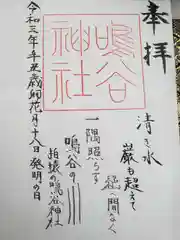 奉拝
鳴谷
神社
清き水
巌も超えて
一隅照らす
鳴谷の川
の鳴谷神社
令和三年辛丑歳卯花月十八日 発明の日